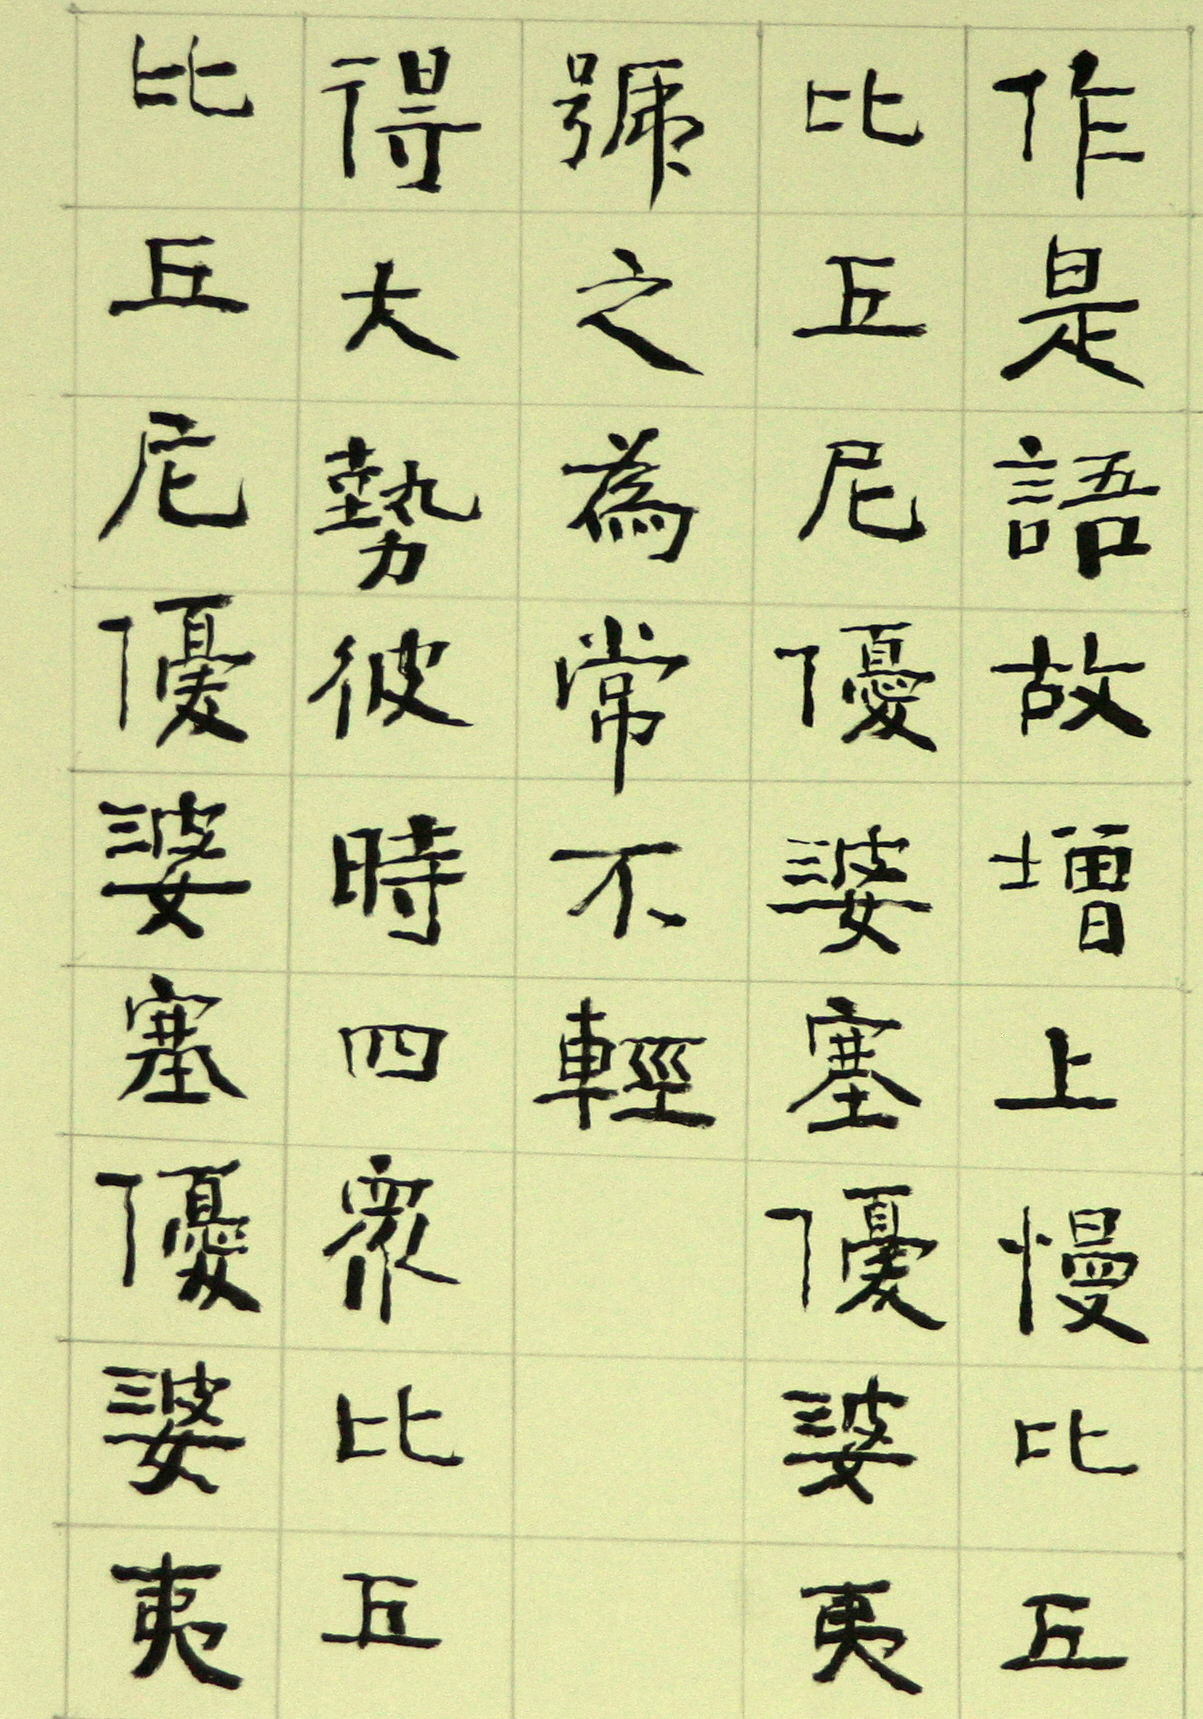 作是語故增上慢比丘
比丘尼優婆塞優婆夷
號之為常不輕
得大勢彼時四眾比丘
比丘尼優婆塞優婆夷